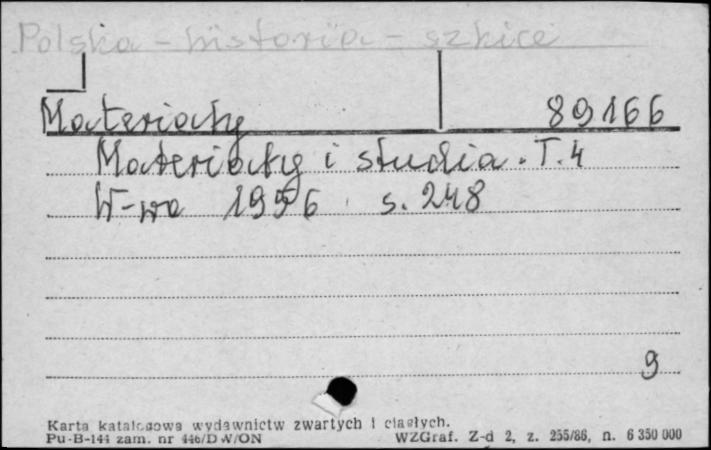 Polska – historia – szkice
Materiały 89166
Materiały i studia. T. 4
W-wa 1956 s. 248
9
Karta katalogowa wydawnictw zwartych i ciągłych.
Pu-B-144 zam. nr 446/DW/ON WZGraf. Z-d 2, z. 255/86, n. 6 350 000